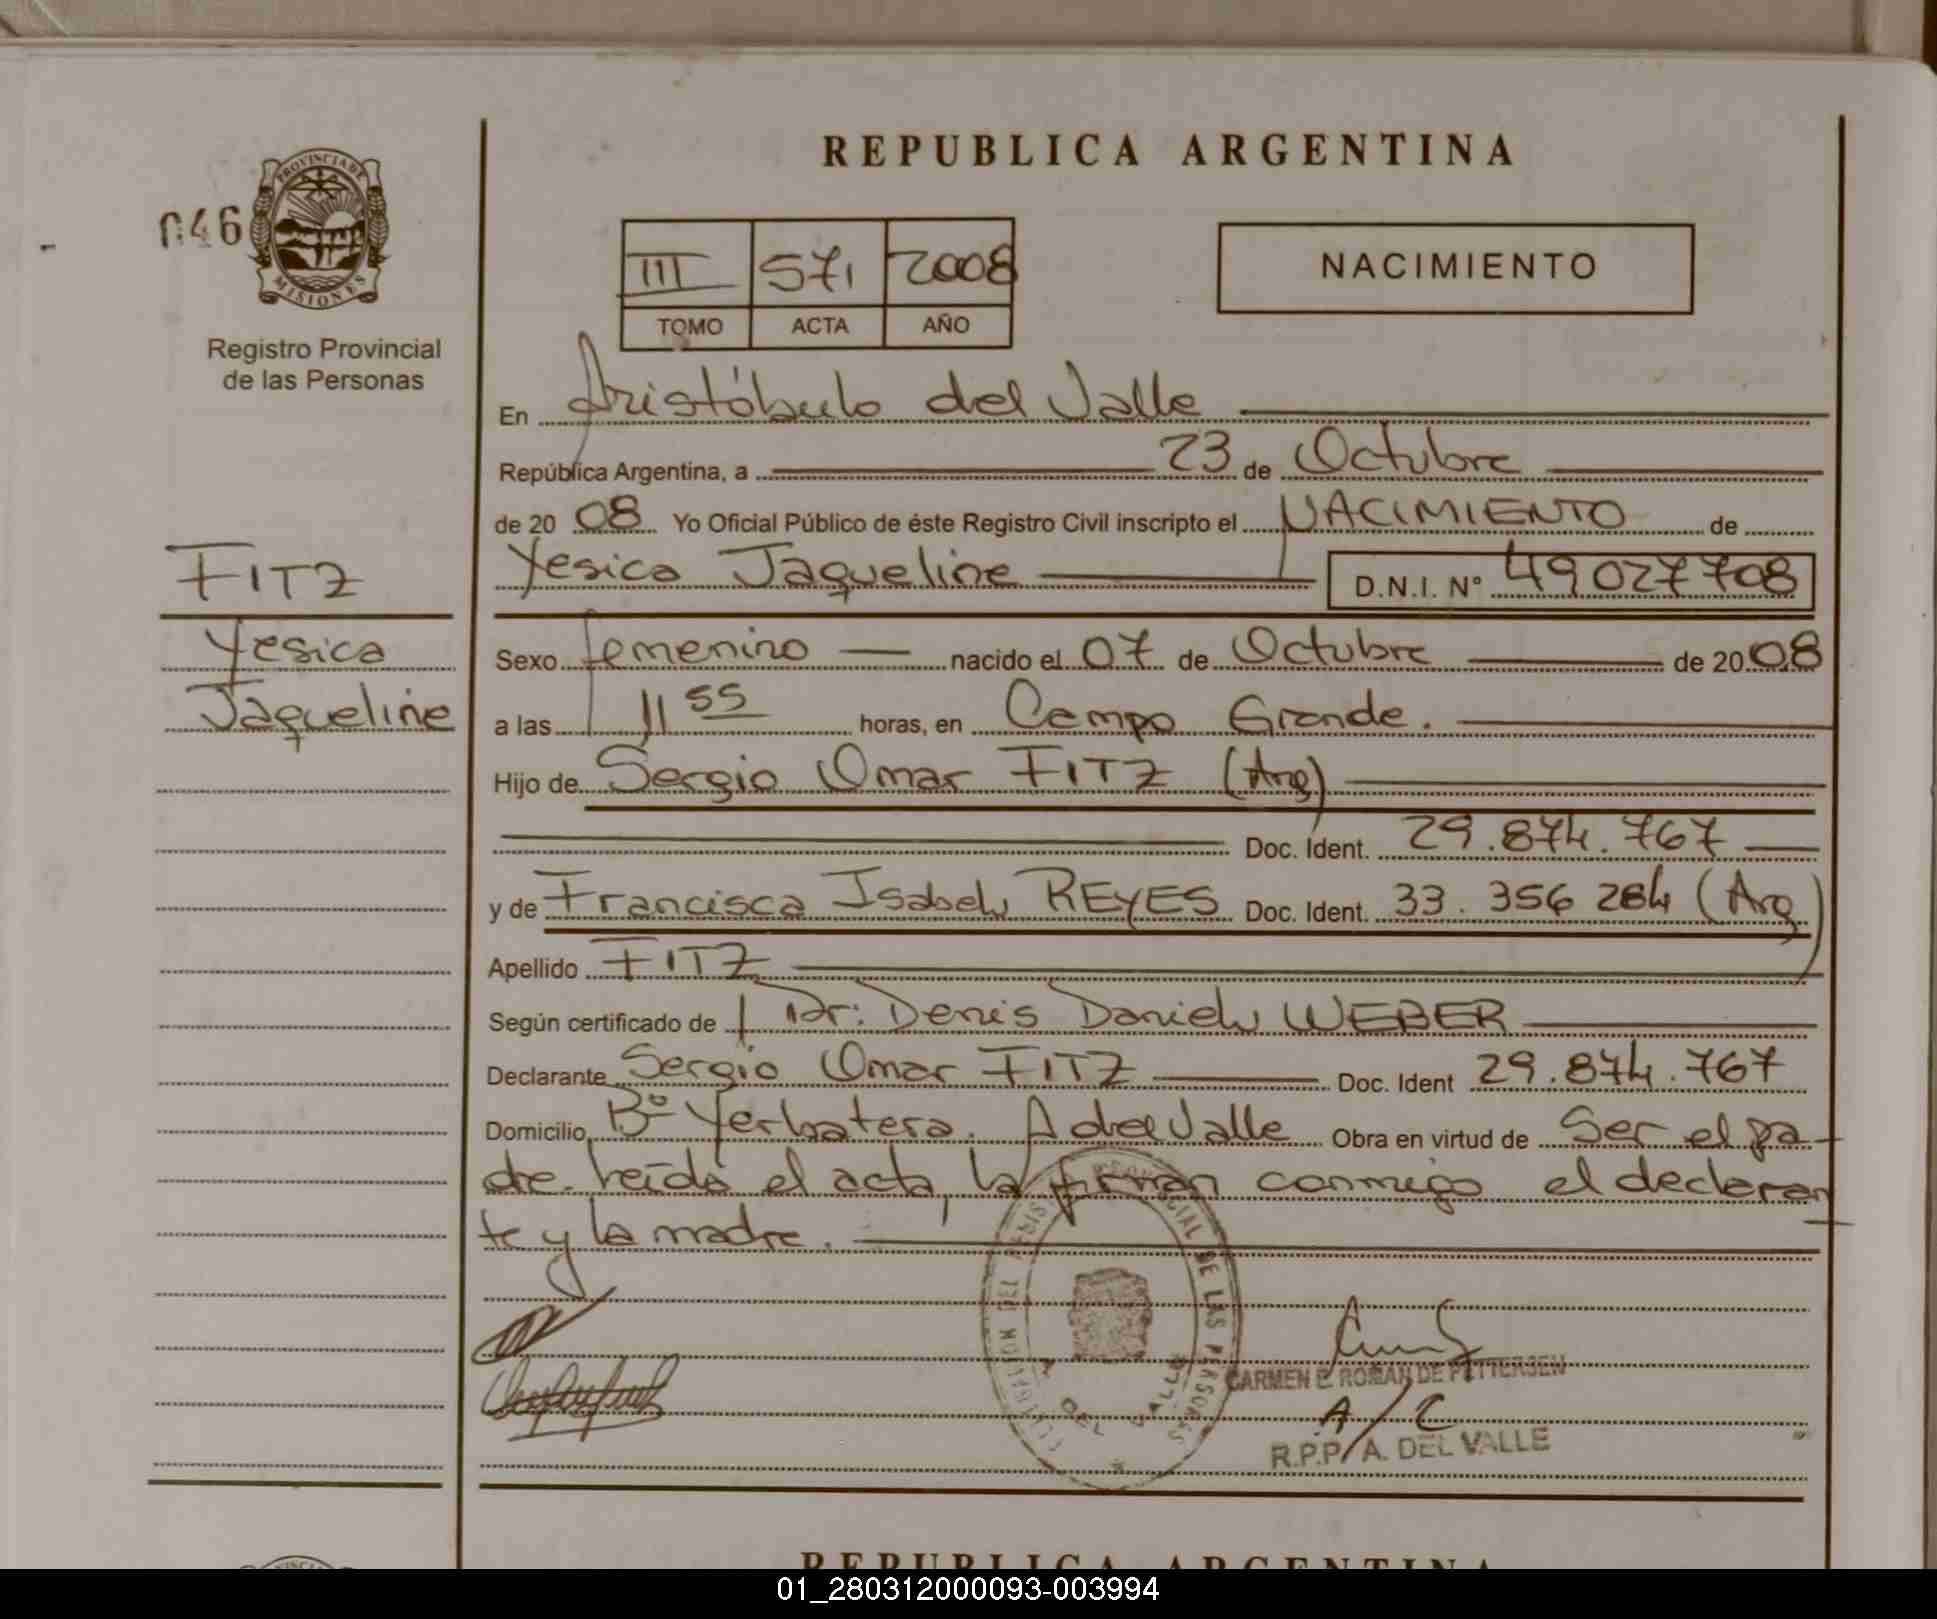 REPUBLICA ARGENTINA
046
PROVINCIA DE
MISIONES
Registro Provincial
de las Personas
III 571 2008
TOMO ACTA AÑO
NACIMIENTO
En Aristóbulo del Valle
República Argentina, a 23 de Octubre
de 2008 Yo Oficial Público de éste Registro Civil inscripto el NACIMIENTO de
Yesica Jaqueline D.N.I. Nº 49027708
FITZ
Yesica
Jaqueline
Sexo femenino nacido el 07 de Octubre de 2008
a las 11 55 horas, en Campo Grande.
Hijo de Sergio Omar FITZ (Arg)
Doc. Ident. 29.874.767
y de Francisca Isabel REYES Doc. Ident. 33.356 284 (Arg)
Apellido FITZ
Según certificado de Dr: Denis Daniel WEBER
Declarante Sergio Omar FITZ Doc. Ident 29.874.767
Domicilio Bº Yerbatera. A del Valle Obra en virtud de Ser el pa-
dre. Leída el acta, la firman conmigo el declaran
te y la madre.
REGISTRO PROVINCIAL DE LAS PERSONAS
A DEL VALLE
CARMEN E ROMAN DE PETTERSEN
A/C
R.P.P. A. DEL VALLE
REPUBLICA ARGENTINA
01_280312000093-003994